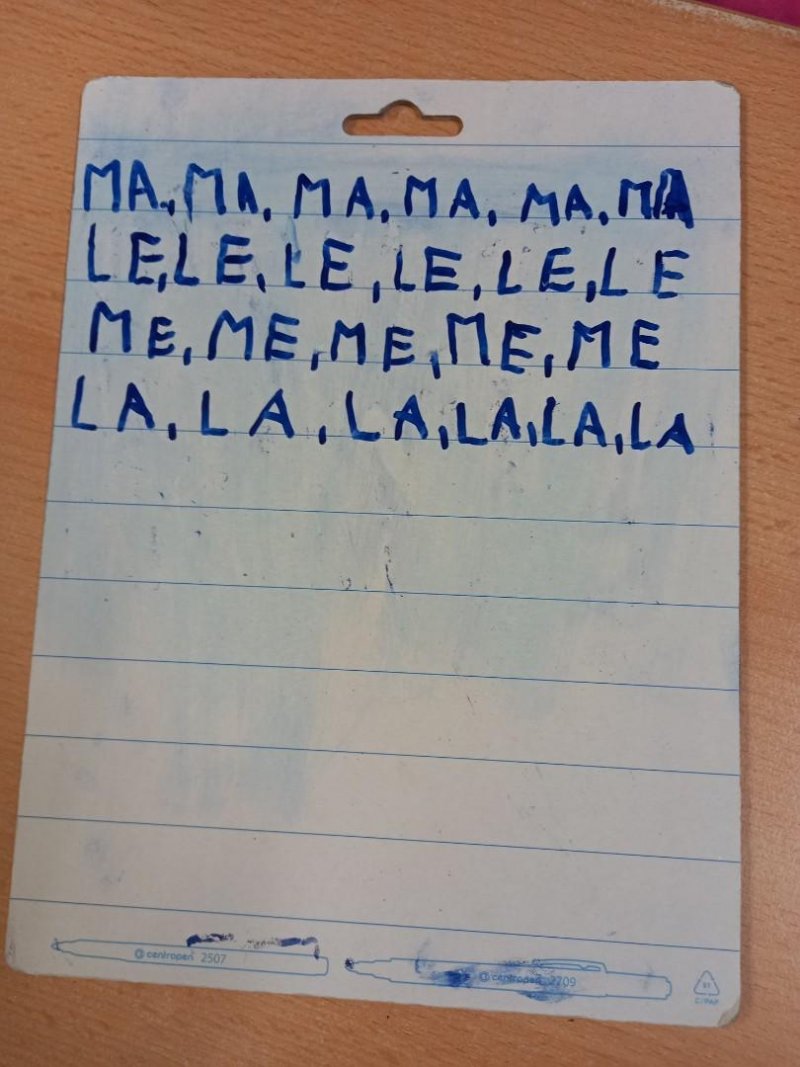 MA, MA, MA, MA, MA, MA
LE, LE, LE, LE, LE, LE
ME, ME, ME, ME, ME
LA, LA, LA, LA, LA, LA
centropen 2507
centropen 2709
81
C/PAP